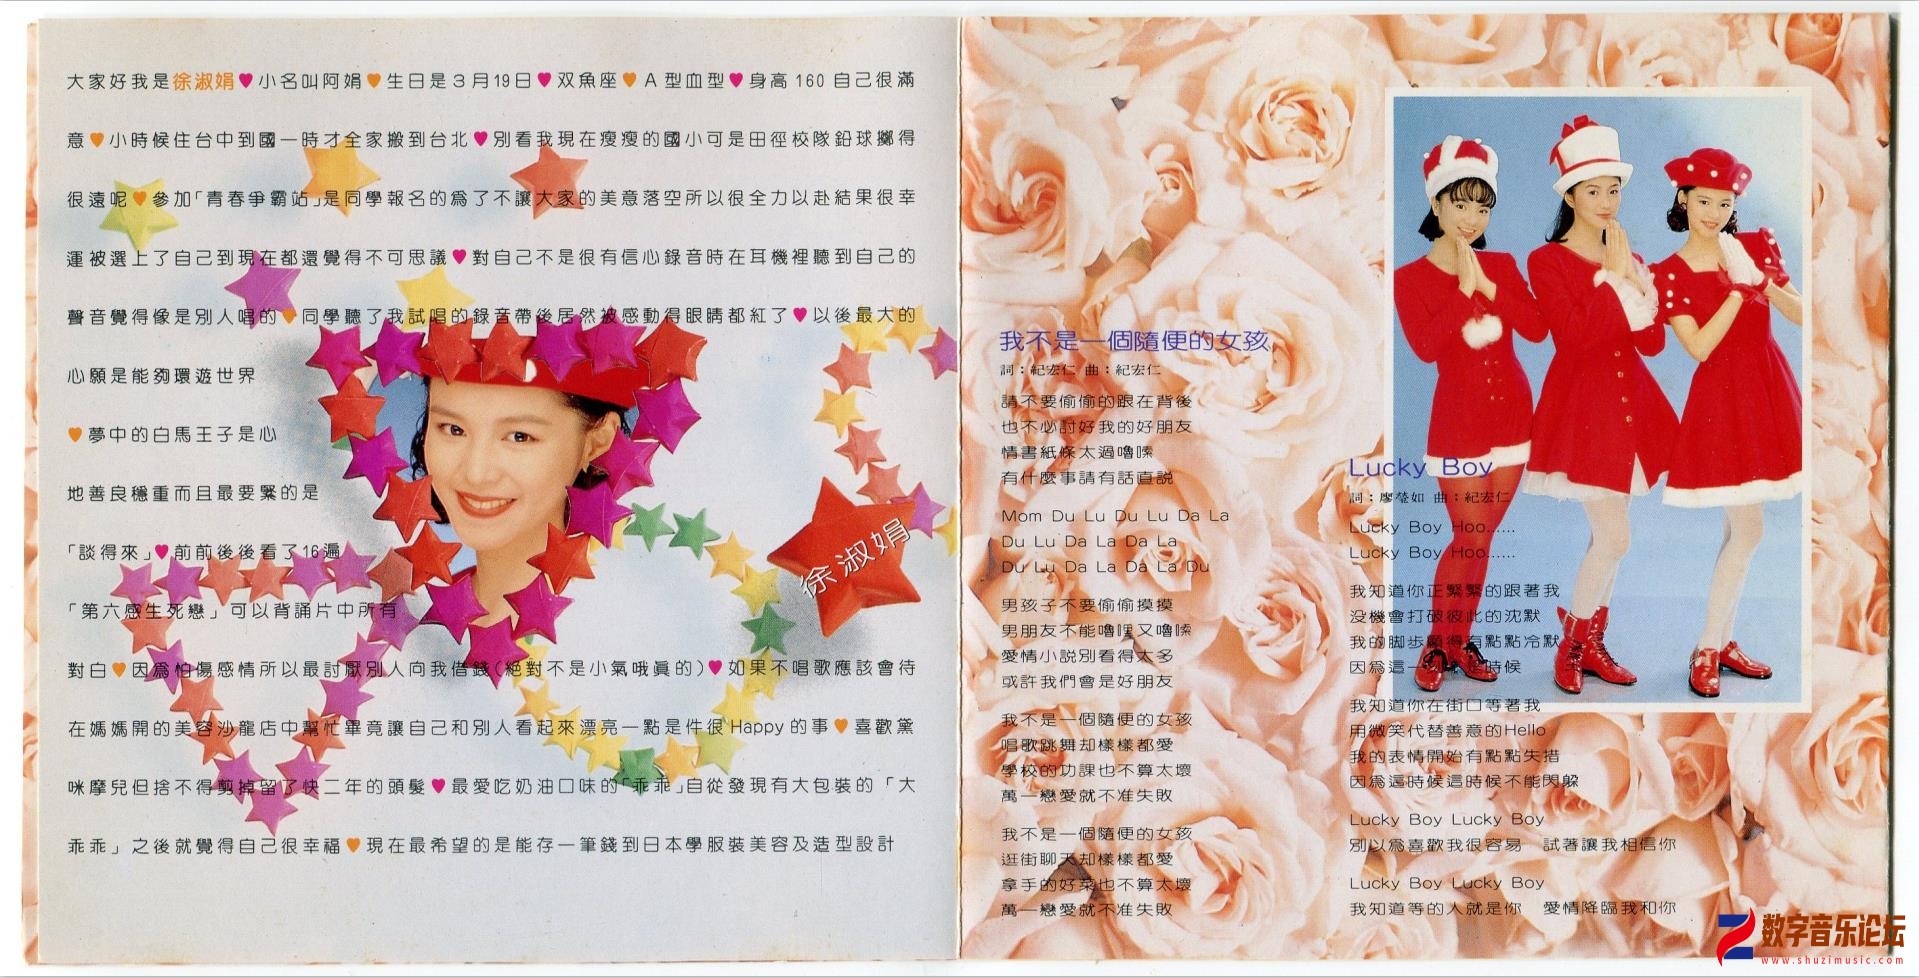 大家好我是徐淑娟♥小名叫阿娟♥生日是3月19日♥双魚座♥A型血型♥身高160自己很滿
意♥小時候住台中到國一時才全家搬到台北♥別看我現在瘦瘦的國小可是田徑校隊鉛球擲得
很遠呢♥參加「青春爭霸站」是同學報名的爲了不讓大家的美意落空所以很全力以赴結果很幸
運被選上了自己到現在都還覺得不可思議♥對自己不是很有信心錄音時在耳機裡聽到自己的
聲音覺得像是別人唱的♥同學聽了我試唱的錄音帶後居然被感動得眼睛都紅了♥以後最大的
心願是能夠環遊世界
♥夢中的白馬王子是心
地善良穩重而且最要緊的是
「談得來」♥前前後後看了16遍
「第六感生死戀」可以背誦片中所有
對白♥因爲怕傷感情所以最討厭別人向我借錢(絕對不是小氣哦眞的)♥如果不唱歌應該會待
在媽媽開的美容沙龍店中幫忙畢竟讓自己和別人看起來漂亮一點是件很Happy的事♥喜歡黛
咪摩兒但捨不得剪掉留了快二年的頭髮♥最愛吃奶油口味的「乖乖」自從發現有大包裝的「大
乖乖」之後就覺得自己很幸福♥現在最希望的是能存一筆錢到日本學服裝美容及造型設計
徐淑娟
我不是一個隨便的女孩
詞：紀宏仁 曲：紀宏仁
請不要偷偷的跟在背後
也不必討好我的好朋友
情書紙條太過嚕嗦
有什麼事請有話直説
Mom Du Lu Du Lu Da La
Du Lu Da La Da La
Du Lu Da La Da La Du
男孩子不要偷偷摸摸
男朋友不能嚕哩又嚕嗦
愛情小説別看得太多
或許我們會是好朋友
我不是一個隨便的女孩
唱歌跳舞却樣樣都愛
學校的功課也不算太壞
萬一戀愛就不准失敗
我不是一個隨便的女孩
逛街聊天却樣樣都愛
拿手的好菜也不算太壞
萬一戀愛就不准失敗
Lucky Boy
詞：廖瑩如 曲：紀宏仁
Lucky Boy Hoo......
Lucky Boy Hoo......
我知道你正緊緊的跟著我
没機會打破彼此的沈默
我的脚步顯得有點點冷默
因爲這一刻不是時候
我知道你在街口等著我
用微笑代替善意的Hello
我的表情開始有點點失措
因爲這時候這時候不能閃躲
Lucky Boy Lucky Boy
別以爲喜歡我很容易 試著讓我相信你
Lucky Boy Lucky Boy
我知道等的人就是你 愛情降臨我和你
数字音乐论坛
www.shuzimusic.com